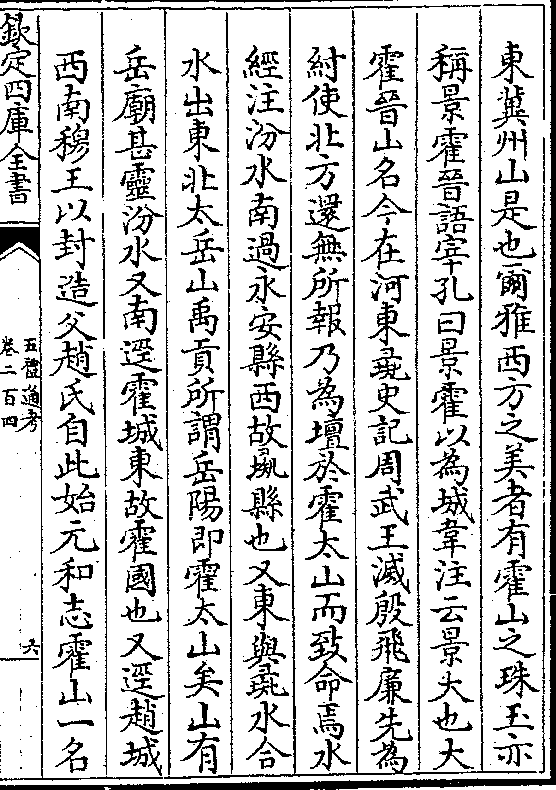 東冀州山是也爾雅西方之美者有霍山之珠玉亦
稱景霍晉語宰孔曰景霍以為城韋注云景大也大
霍晉山名今在河東彘史記周武王滅殷飛廉先為
紂使北方還無所報乃為壇於霍太山而致命焉水
經注汾水南過永安縣西故彘縣也又東與彘水合
水出東北太岳山禹貢所謂岳陽即霍太山矣山有
岳廟甚靈汾水又南逕霍城東故霍國也又逕趙城
西南穆王以封造父趙氏自此始元和志霍山一名
欽定四庫全書
五禮通考
卷二百四
六